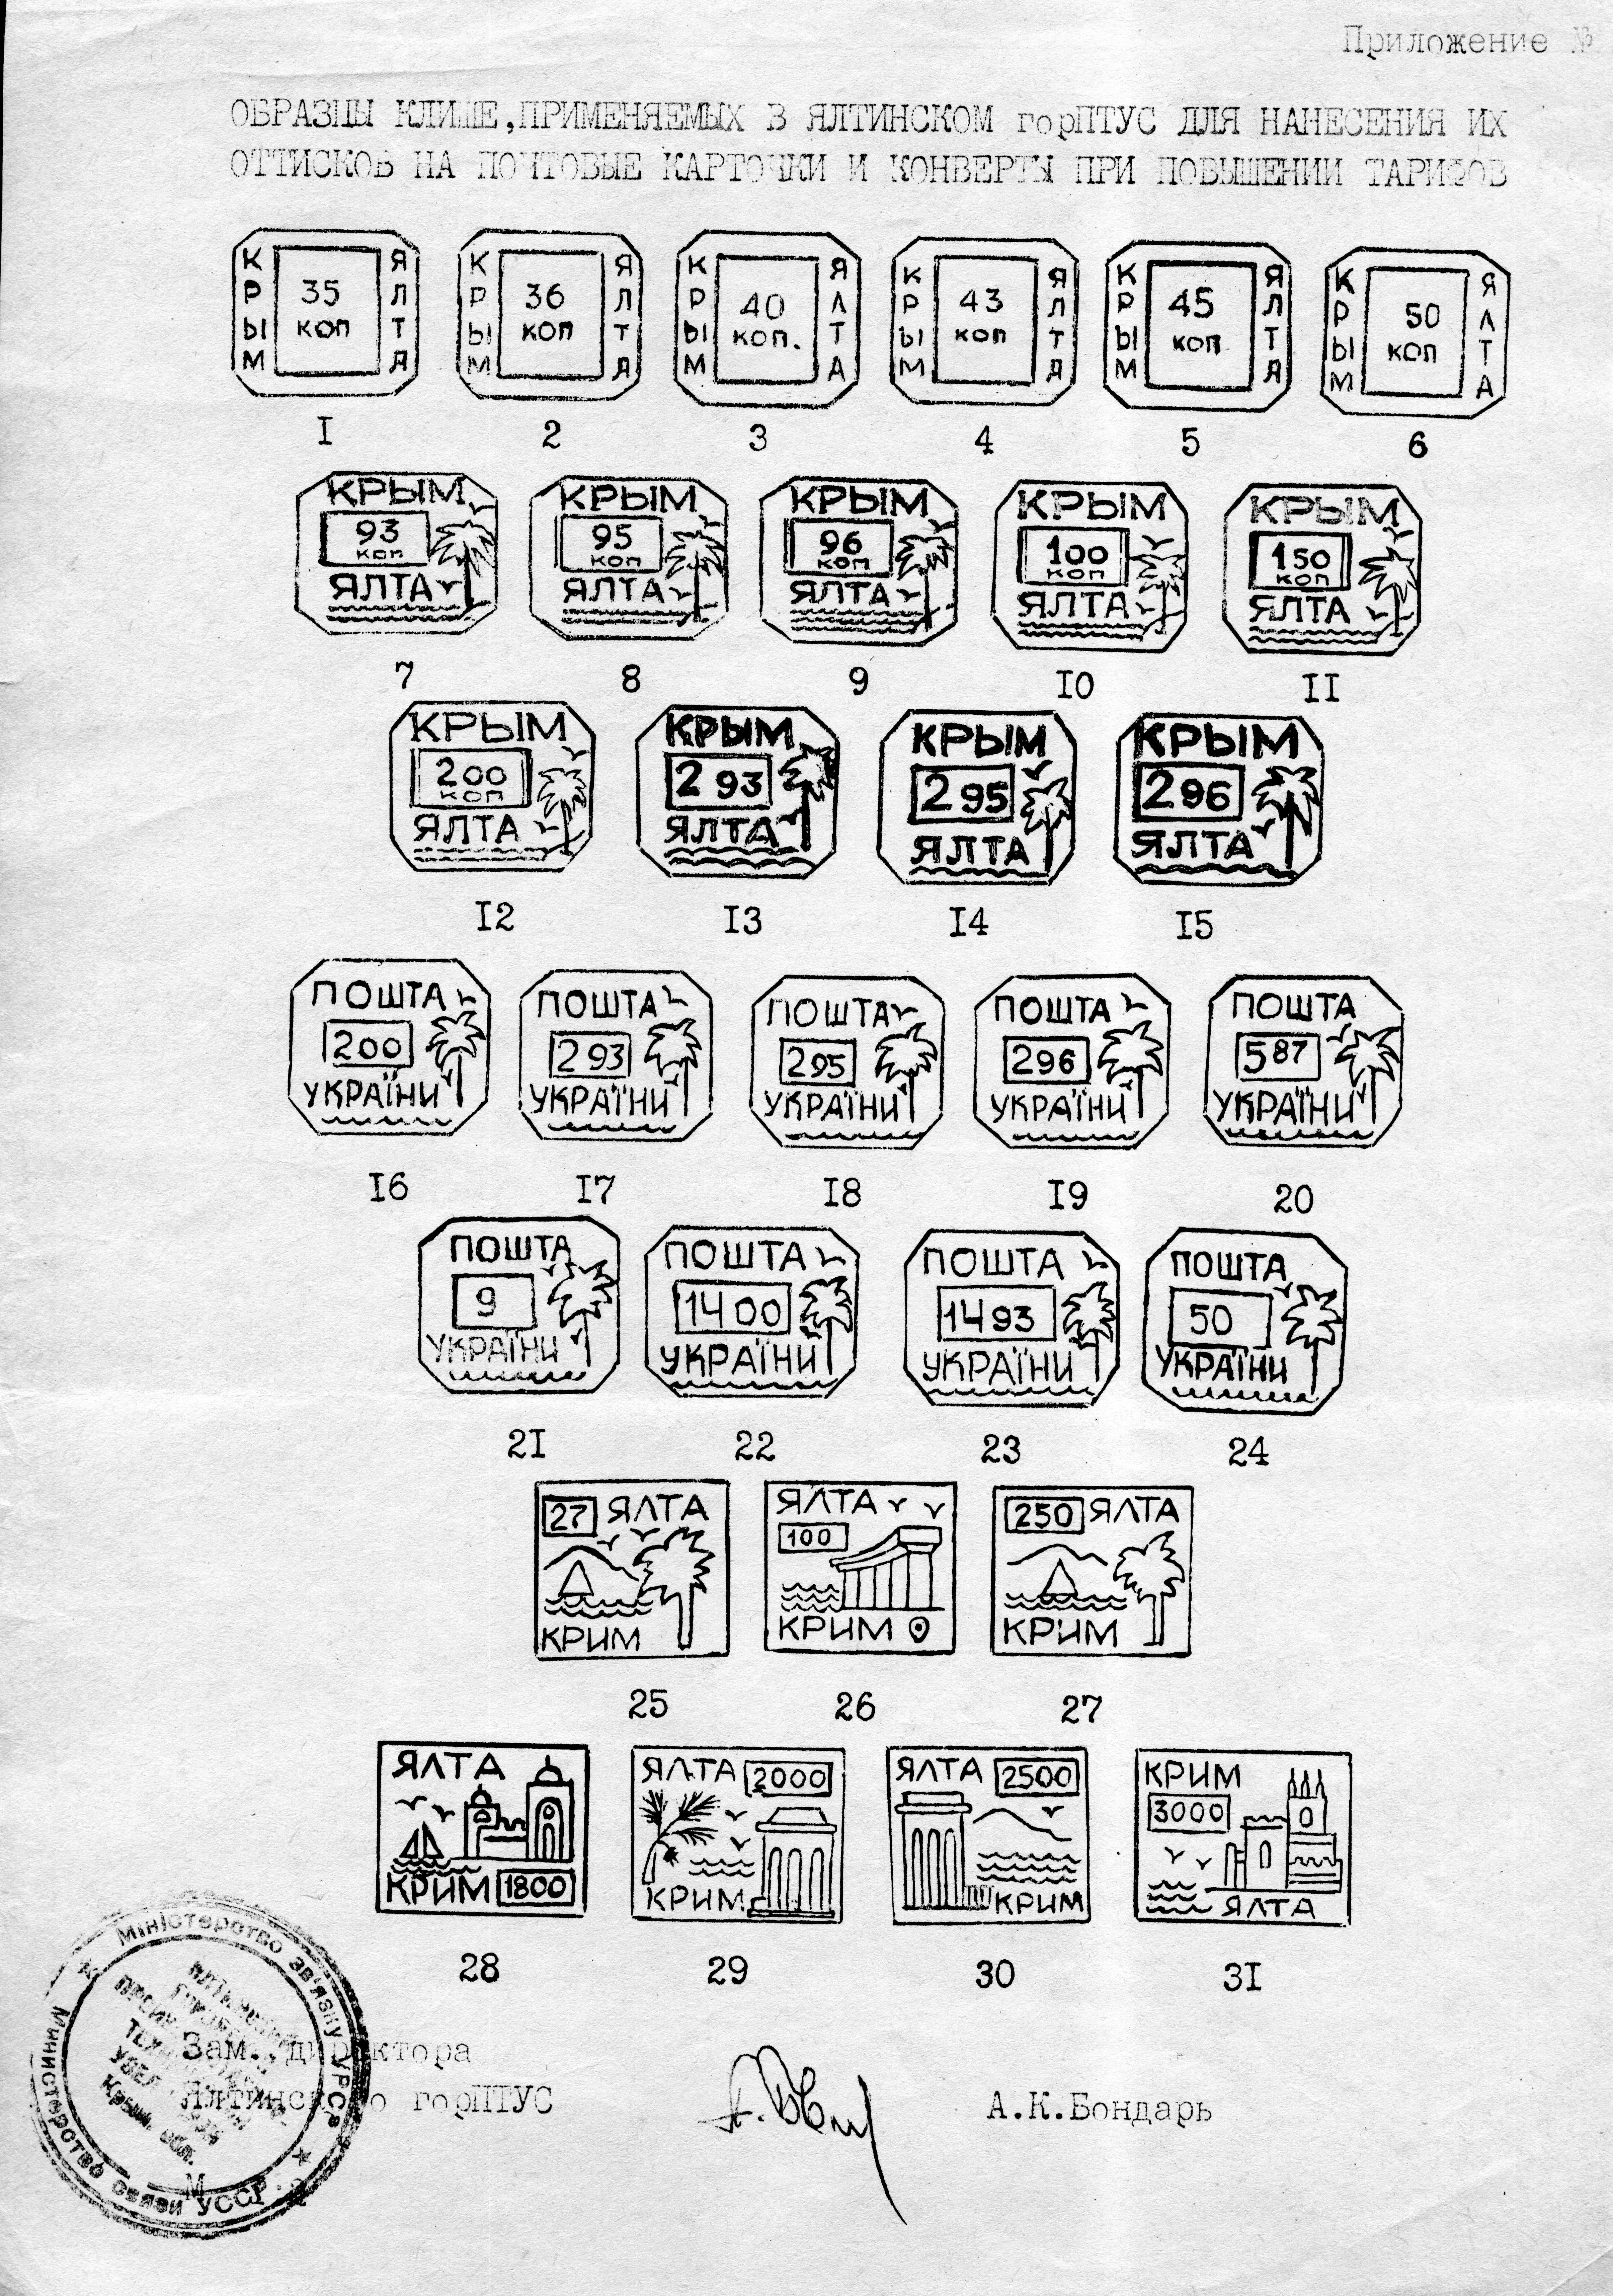 Приложение №
ОБРАЗЦЫ КЛИШЕ,ПРИМЕНЯЕМЫХ В ЯЛТИНСКОМ горПТУС ДЛЯ НАНЕСЕНИЯ ИХ
ОТТИСКОВ НА ПОЧТОВЫЕ КАРТОЧКИ И КОНВЕРТЫ ПРИ ПОВЫШЕНИИ ТАРИФОВ
КРЫМ 35 коп ЯЛТА
КРЫМ 36 коп ЯЛТА
КРЫМ 40 коп. ЯЛТА
КРЫМ 43 коп ЯЛТА
КРЫМ 45 коп ЯЛТА
КРЫМ 50 коп ЯЛТА
I 2 3 4 5 6
КРЫМ
93
коп
ЯЛТА
КРЫМ
95
коп
ЯЛТА
КРЫМ
96
коп
ЯЛТА
КРЫМ
100
коп
ЯЛТА
КРЫМ
150
коп
ЯЛТА
7 8 9 I0 II
КРЫМ
200
коп
ЯЛТА
КРЫМ
293
ЯЛТА
КРЫМ
295
ЯЛТА
КРЫМ
296
ЯЛТА
I2 I3 I4 I5
ПОШТА
200
УКРАЇНИ
ПОШТА
293
УКРАЇНИ
ПОШТА
295
УКРАЇНИ
ПОШТА
296
УКРАЇНИ
ПОШТА
587
УКРАЇНИ
I6 I7 I8 I9 20
ПОШТА
9
УКРАЇНИ
ПОШТА
1400
УКРАЇНИ
ПОШТА
1493
УКРАЇНИ
ПОШТА
50
УКРАЇНИ
2I 22 23 24
27 ЯЛТА
КРИМ
ЯЛТА
100
КРИМ
250 ЯЛТА
КРИМ
25 26 27
ЯЛТА
КРИМ 1800
ЯЛТА 2000
КРИМ
ЯЛТА 2500
КРИМ
КРИМ
3000
ЯЛТА
28 29 30 3I
Міністерство зв'язку УРСР
Министерство связи УССР
Зам. директора
Ялтинского горПТУС
А.К.Бондарь
М